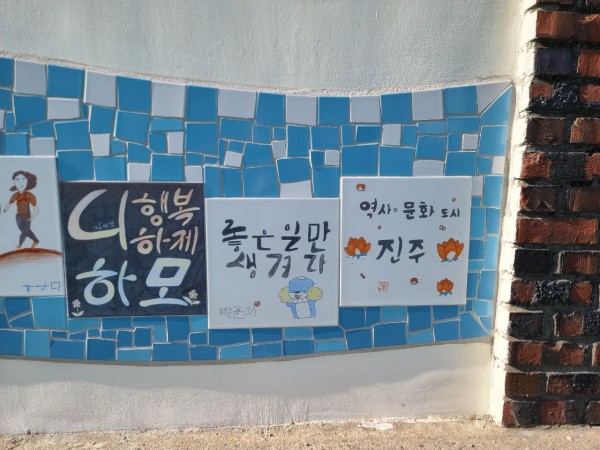 니 행복
하제
하모
좋은일만
생겨라
역사·문화 도시
진주